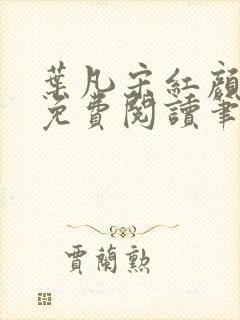 葉凡宋紅顏
免費閱讀筆
賈蘭勲